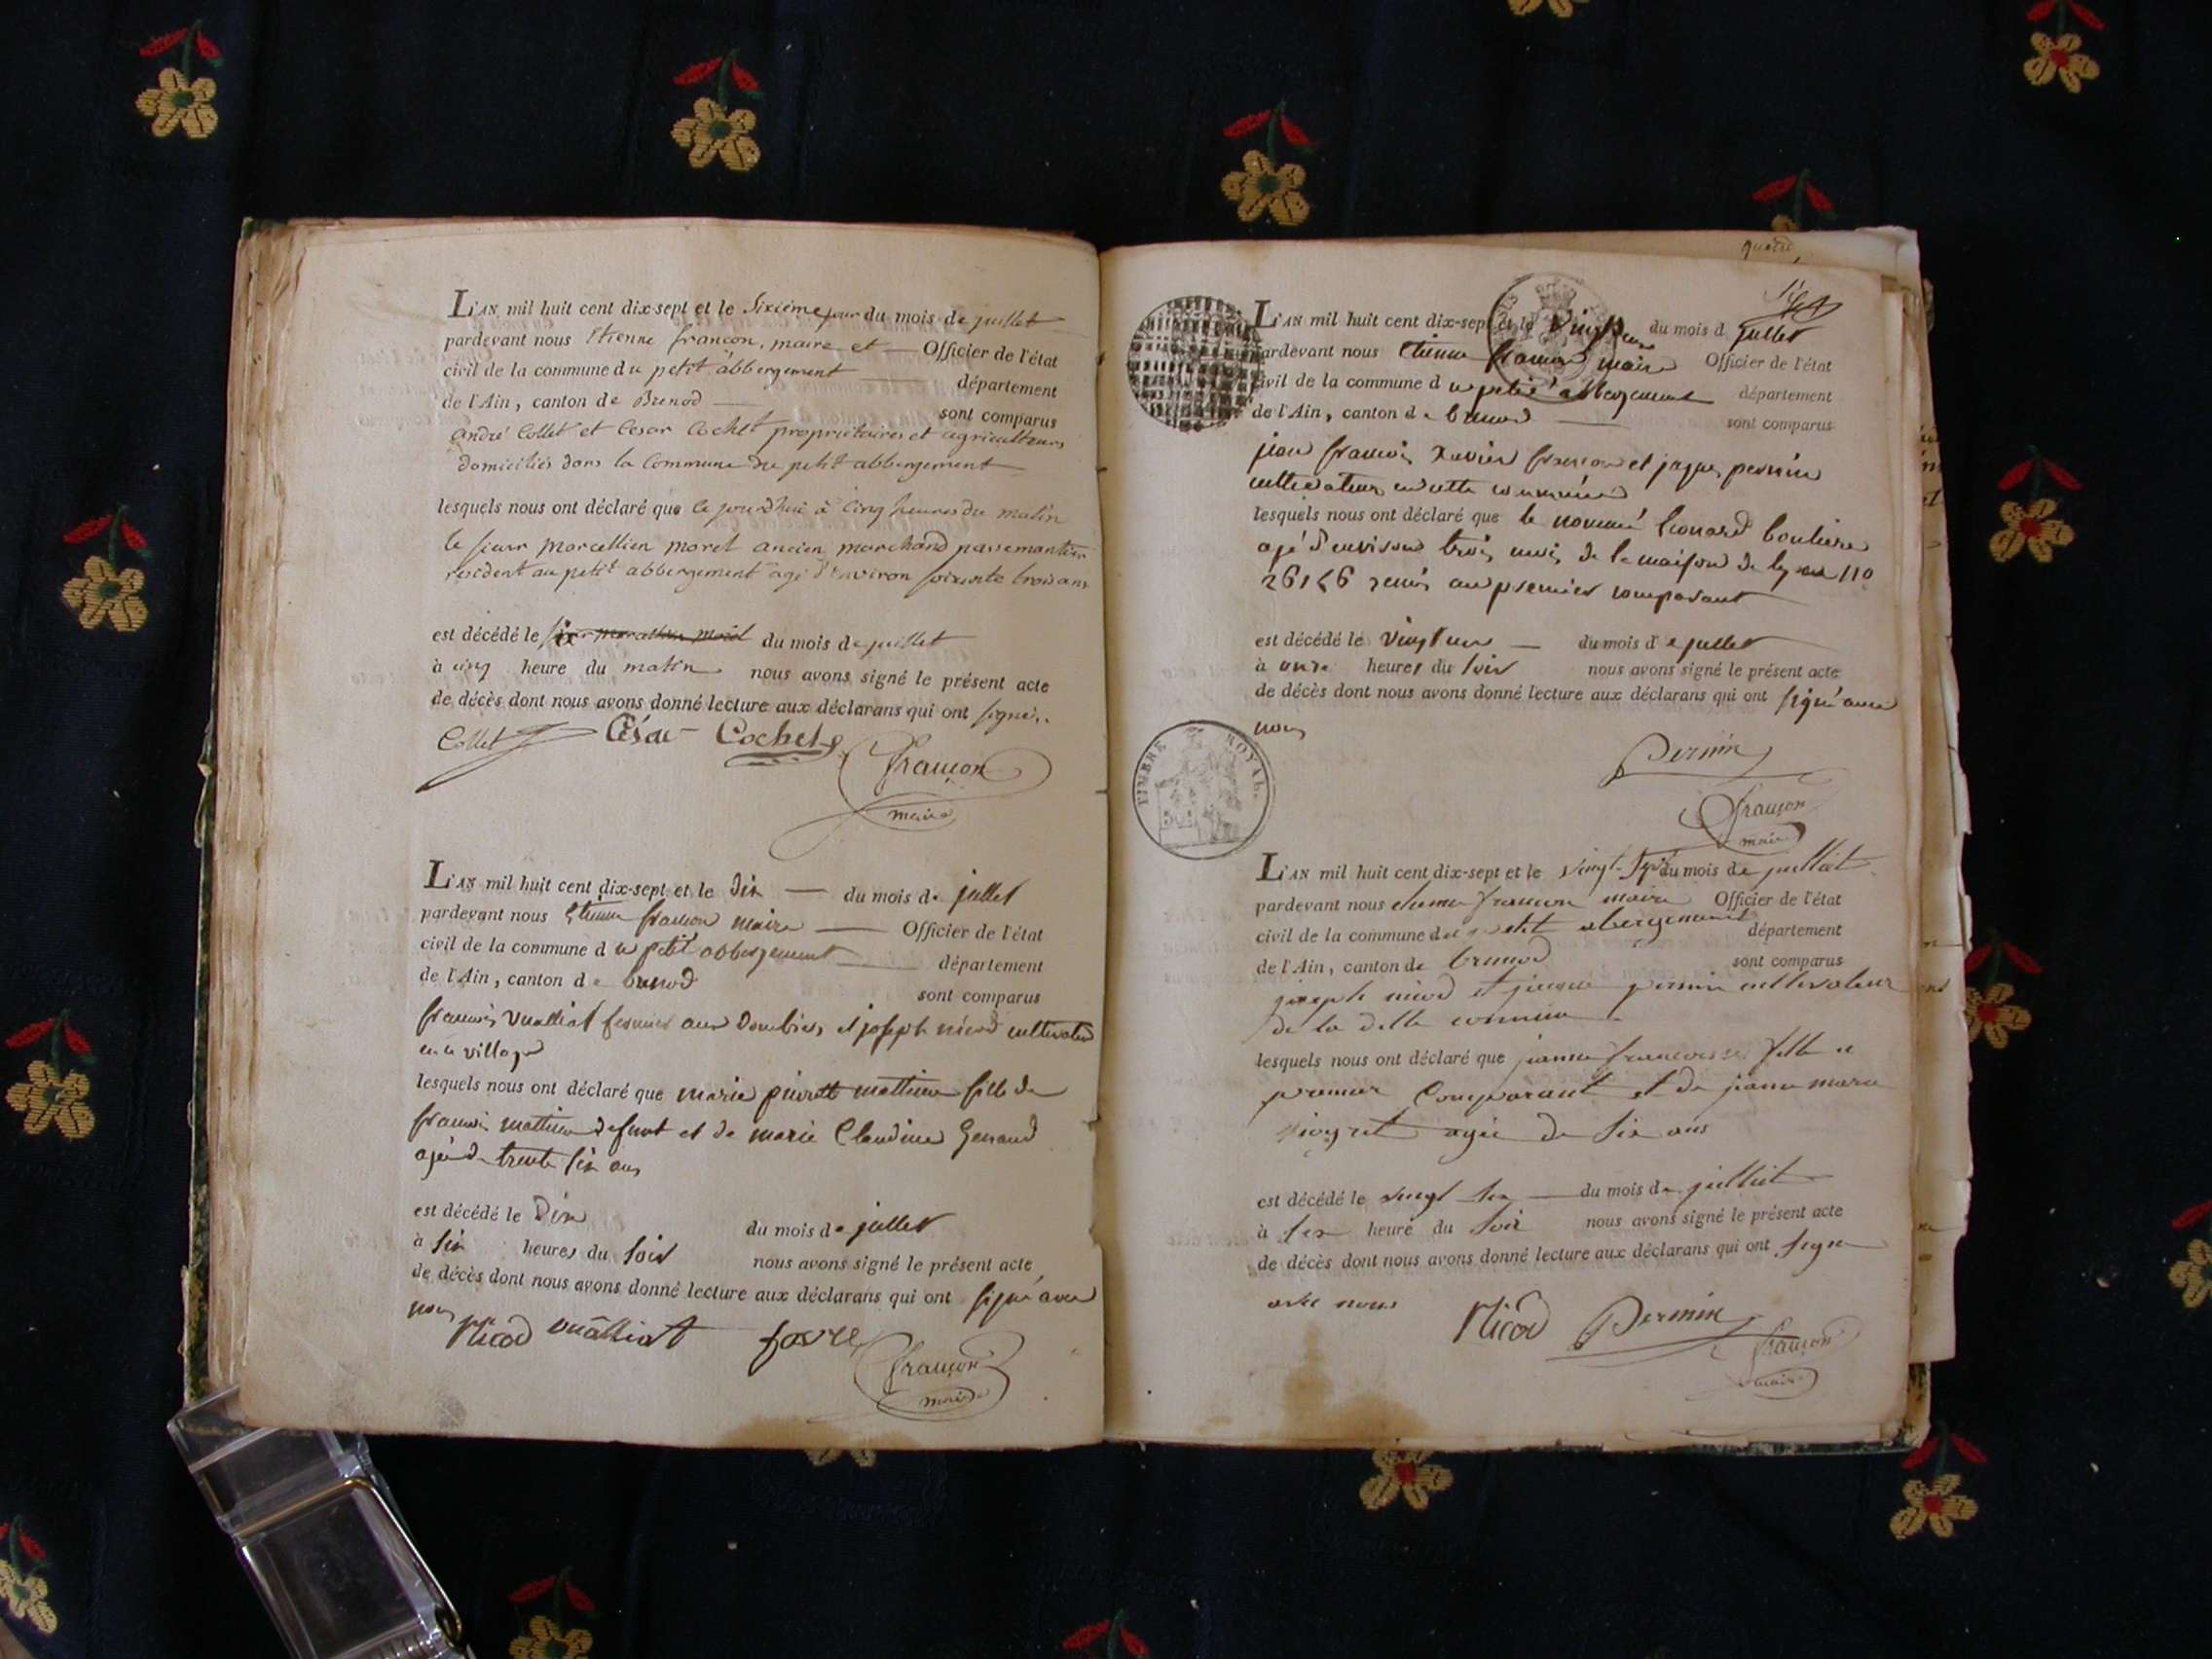 L'AN mil huit cent dix-sept et le Sixième jour du mois de juillet
pardevant nous Etienne françon, maire et Officier de l'état
civil de la commune du petit abbergement département
de l'Ain, canton de Brenod sont comparus
andré Collet et Cesar Cochet propriétaires et agriculteurs
domiciliés dans la Commune du petit abbergement
lesquels nous ont déclaré que ce jourd'hui à Cinq heures du matin
le sieur Marcellien moret ancien marchand passementier
resident au petit abbergement agé d'Environ soixante trois ans
est décédé le six du mois de juillet
à cinq heure du matin nous avons signé le présent acte
de décès dont nous avons donné lecture aux déclarans qui ont signé..
Collet César Cochet françon
maire
L'AN mil huit cent dix-sept et le dix du mois de jullet
pardevant nous Etienne françon maire Officier de l'état
civil de la commune du petit abbergement département
de l'Ain, canton de brenod sont comparus
françois vualliat fermier aux Dombies et joseph nicod cultivateur
en ce village
lesquels nous ont déclaré que marie pierrette mathieu fille de
françois mathieu defunt et de marie Claudine Genand
agée de trente six ans
est décédé le Dix du mois de jullet
à six heures du soir nous avons signé le présent acte
de décès dont nous avons donné lecture aux déclarans qui ont signé avec
nous Nicod vuâlliat favre françon
maire
quatre
L'AN mil huit cent dix-sept et le Vingt deux du mois d jullet
pardevant nous Etienne françon maire Officier de l'état
civil de la commune du petit abbergement département
de l'Ain, canton de brenod sont comparus
jean françois Xavier françon et jaques pernin
cultivateurs en cette commune
lesquels nous ont déclaré que le nommé Leonard bouliere
agé d'environ trois mois de la maison de 110
26146 remis au premier comparant
est décédé le vingt un du mois de jullet
à onze heures du soir nous avons signé le présent acte
de décès dont nous avons donné lecture aux déclarans qui ont signé avec
nous
TIMBRE ROYAL.
Pernin
françon
maire
L'AN mil huit cent dix-sept et le vingt-sept du mois de juillet
pardevant nous etienne françon maire Officier de l'état
civil de la commune du petit abergement département
de l'Ain, canton de brenod sont comparus
joseph nicod et pernin cultivateur
de la ditte commune
lesquels nous ont déclaré que jeanne françoise fille
premier Comparant et de jeanne marie
agée de six ans
est décédé le vingt six du mois de juillet
à six heure du soir nous avons signé le présent acte
de décès dont nous avons donné lecture aux déclarans qui ont signe
avec nous Nicod Pernin françon
maire